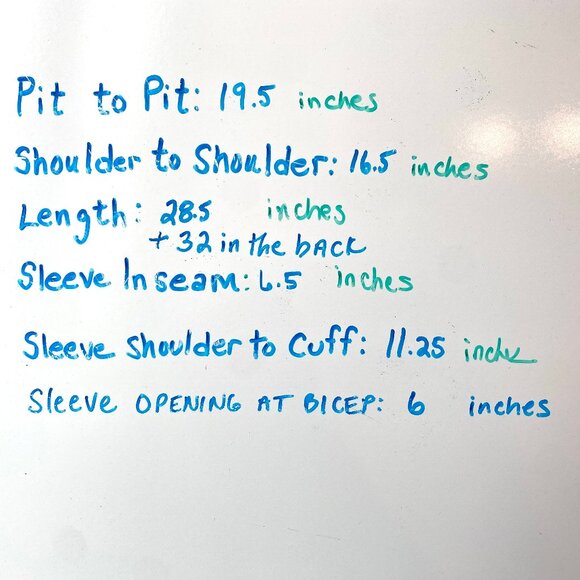 Pit to Pit: 19.5 inches
Shoulder to Shoulder: 16.5 inches
Length: 28.5 inches
+ 32 in the back
Sleeve Inseam: 6.5 inches
Sleeve Shoulder to Cuff: 11.25 inches
Sleeve OPENING AT BICEP: 6 inches